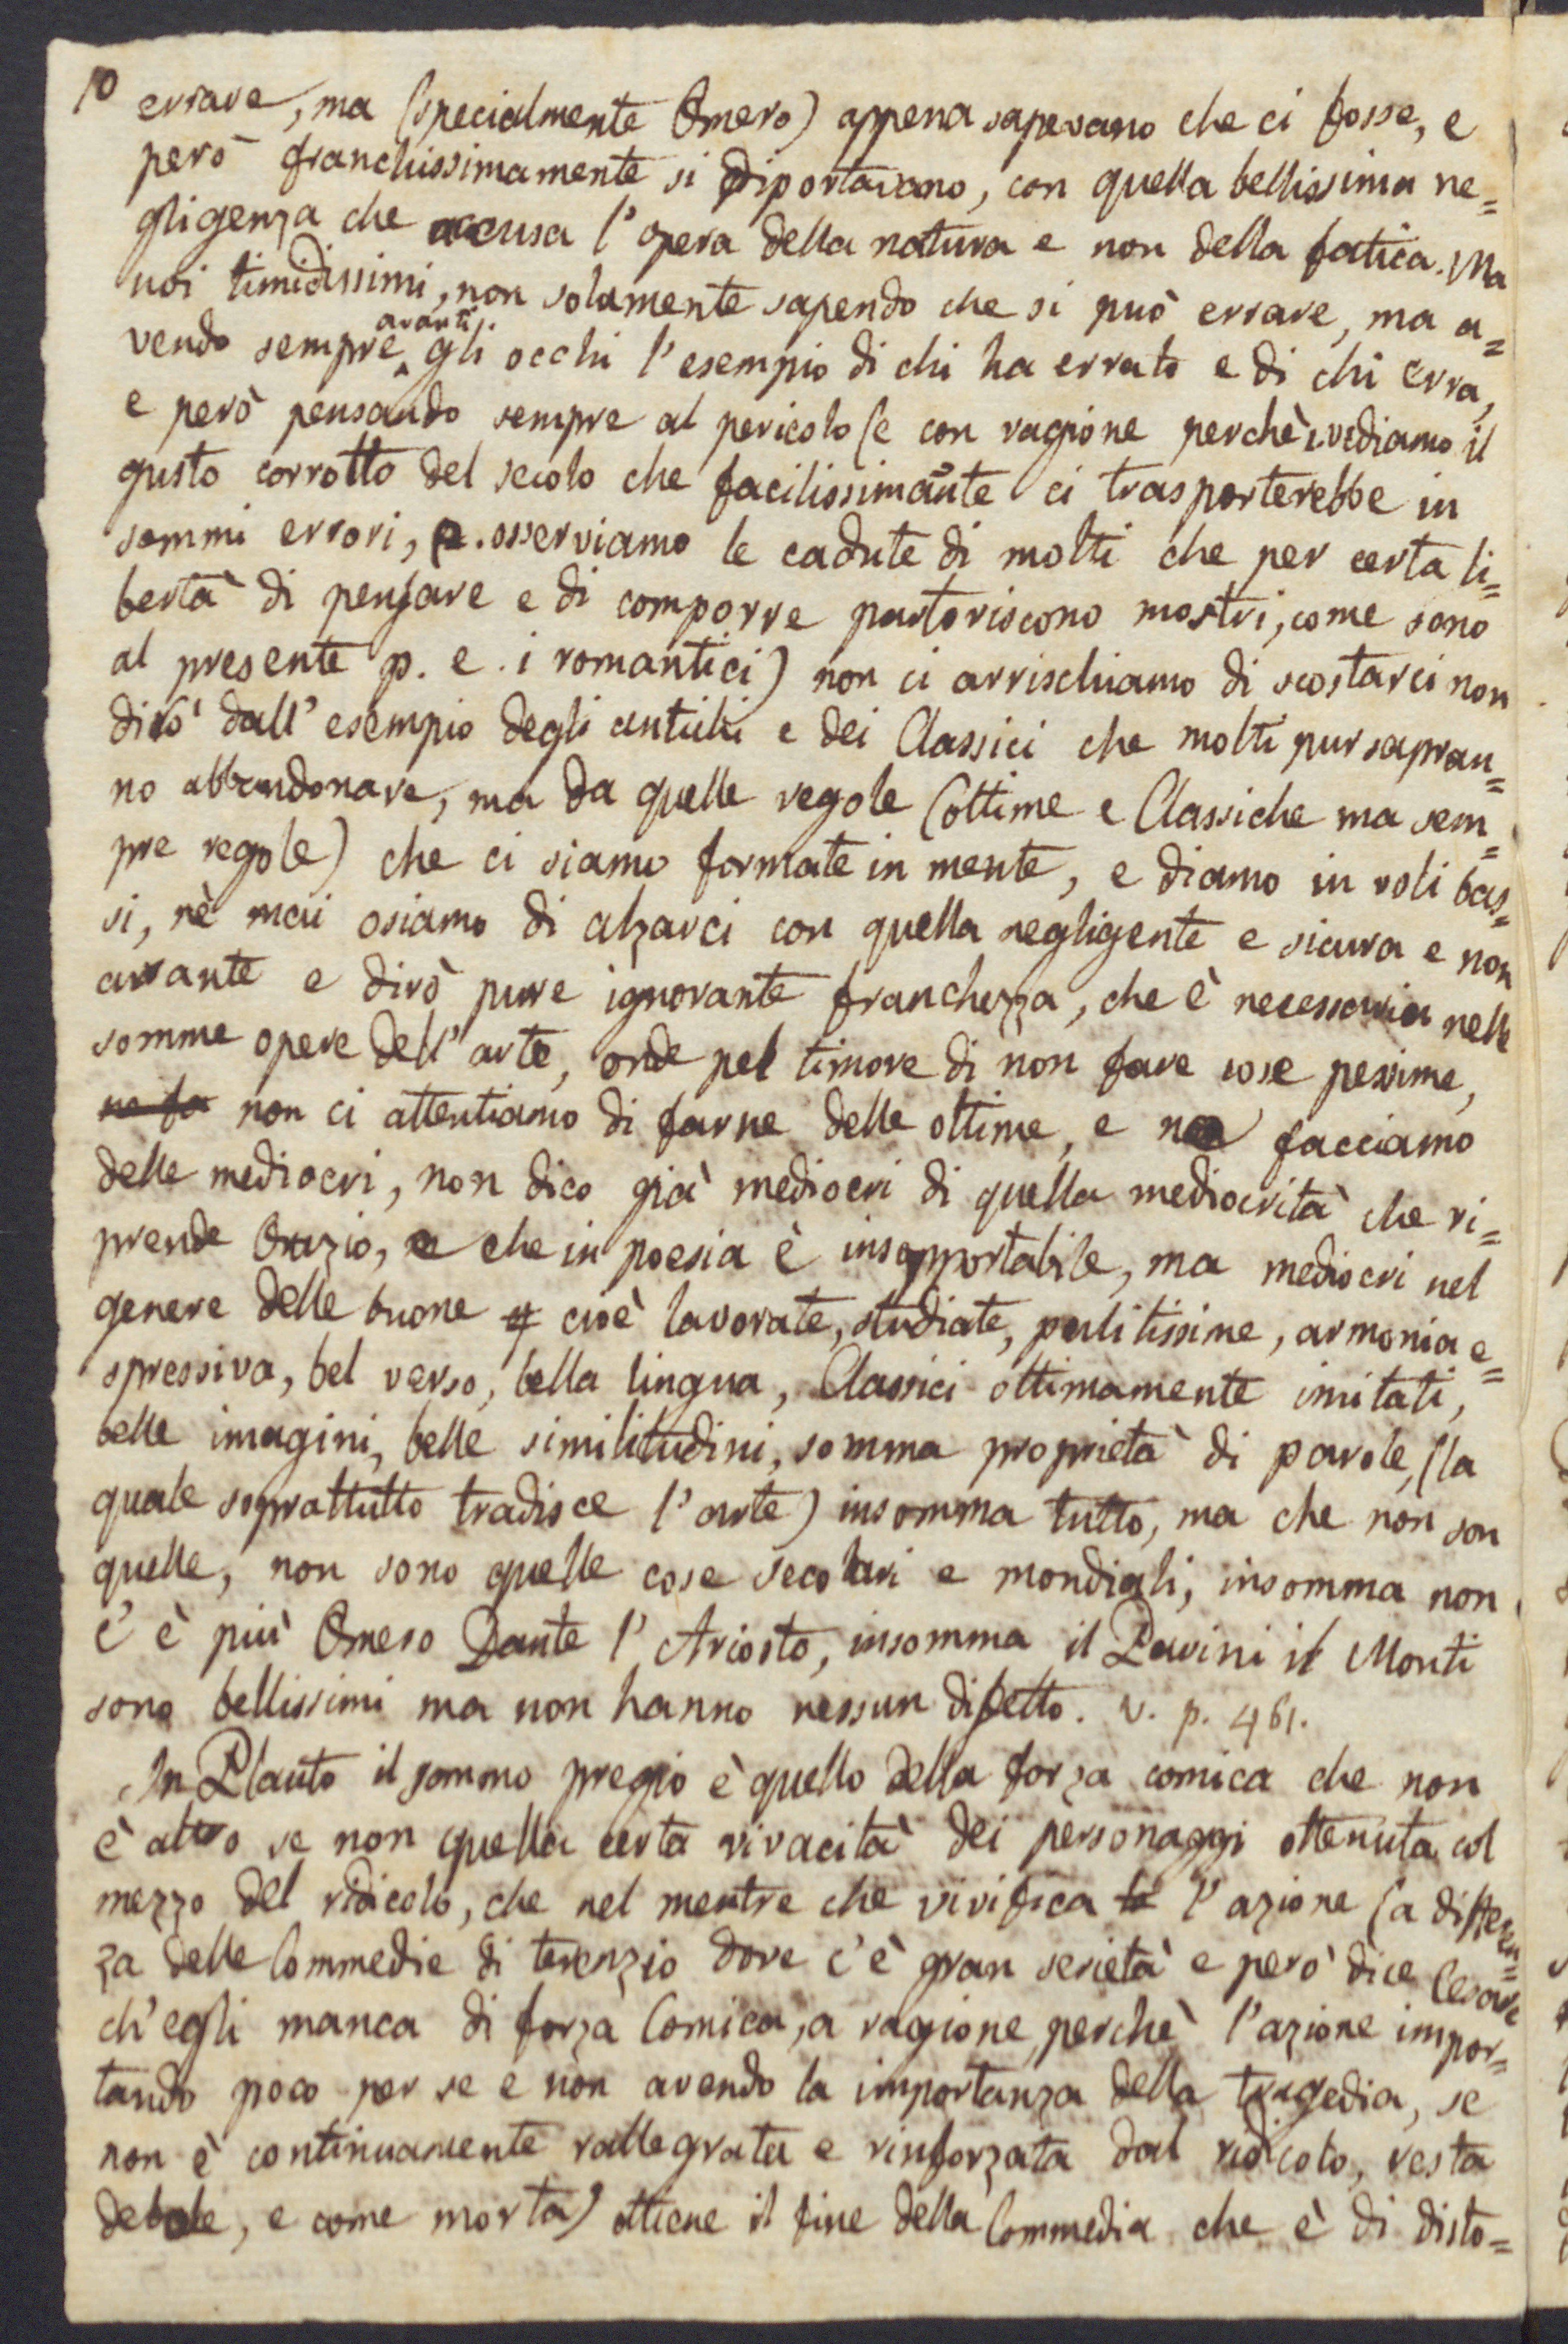 10
errare, ma (specialmente Omero) appena sapevano che ci fosse, e
però franchissimamente si diportavano, con quella bellissima ne=
gligenza che accusa l'opera della natura e non della fatica. Ma
noi timidissimi, non solamente sapendo che si può errare, ma a=
vendo sempre avanti gli occhi l'esempio di chi ha errato e di chi erra,
e però pensando sempre al pericolo (e con ragione perchè vediamo il
gusto corrotto del secolo che facilissimante ci trasporterebbe in
sommi errori, 2. osserviamo le cadute di molti che per certa li=
bertà di pensare e di comporre partoriscono mostri, come sono
al presente p. e. i romantici) non ci arrischiamo di scostarci non
dirò dall'esempio degli antichi e dei Classici che molti pur sapran=
no abbandonare, ma da quelle regole (ottime e Classiche ma sem=
pre regole) che ci siamo formate in mente, e diamo in voli bas=
si, nè mai osiamo di alzarci con quella negligente e sicura e non
curante e dirò pure ignorante franchezza, che è necessaria nelle
somme opere dell'arte, onde pel timore di non fare cose pessime,
ne fa non ci attentiamo di farne delle ottime, e ne facciamo
delle mediocri, non dico già mediocri di quella mediocrità che ri=
prende Orazio, e che in poesia è insopportabile, ma mediocri nel
genere delle buone cioè lavorate, studiate, pulitissime, armonia e=
spressiva, bel verso, bella lingua, Classici ottimamente imitati,
belle imagini, belle similitudini, somma proprietà di parole, (la
quale soprattutto tradisce l'arte) insomma tutto, ma che non son
quelle, non sono quelle cose secolari e mondiali, insomma non
c'è più Omero Dante l'Ariosto, insomma il Parini il Monti
sono bellissimi ma non hanno nessun difetto. v. p. 461.
In Plauto il sommo pregio è quello della forza comica che non
è altro se non quella certa vivacità dei personaggi ottenuta col
mezzo del ridicolo, che nel mentre che vivifica la l'azione (a differen=
za delle Commedie di terenzio dove c'è gran serietà e però dice Cesare
ch'egli manca di forza Comica, a ragione, perchè l'azione impor=
tando poco per se e non avendo la importanza della tragedia, se
non è continuamente rallegrata e rinforzata dal ridicolo, resta
debole, e come morta) ottiene il fine della Commedia che è di disto=